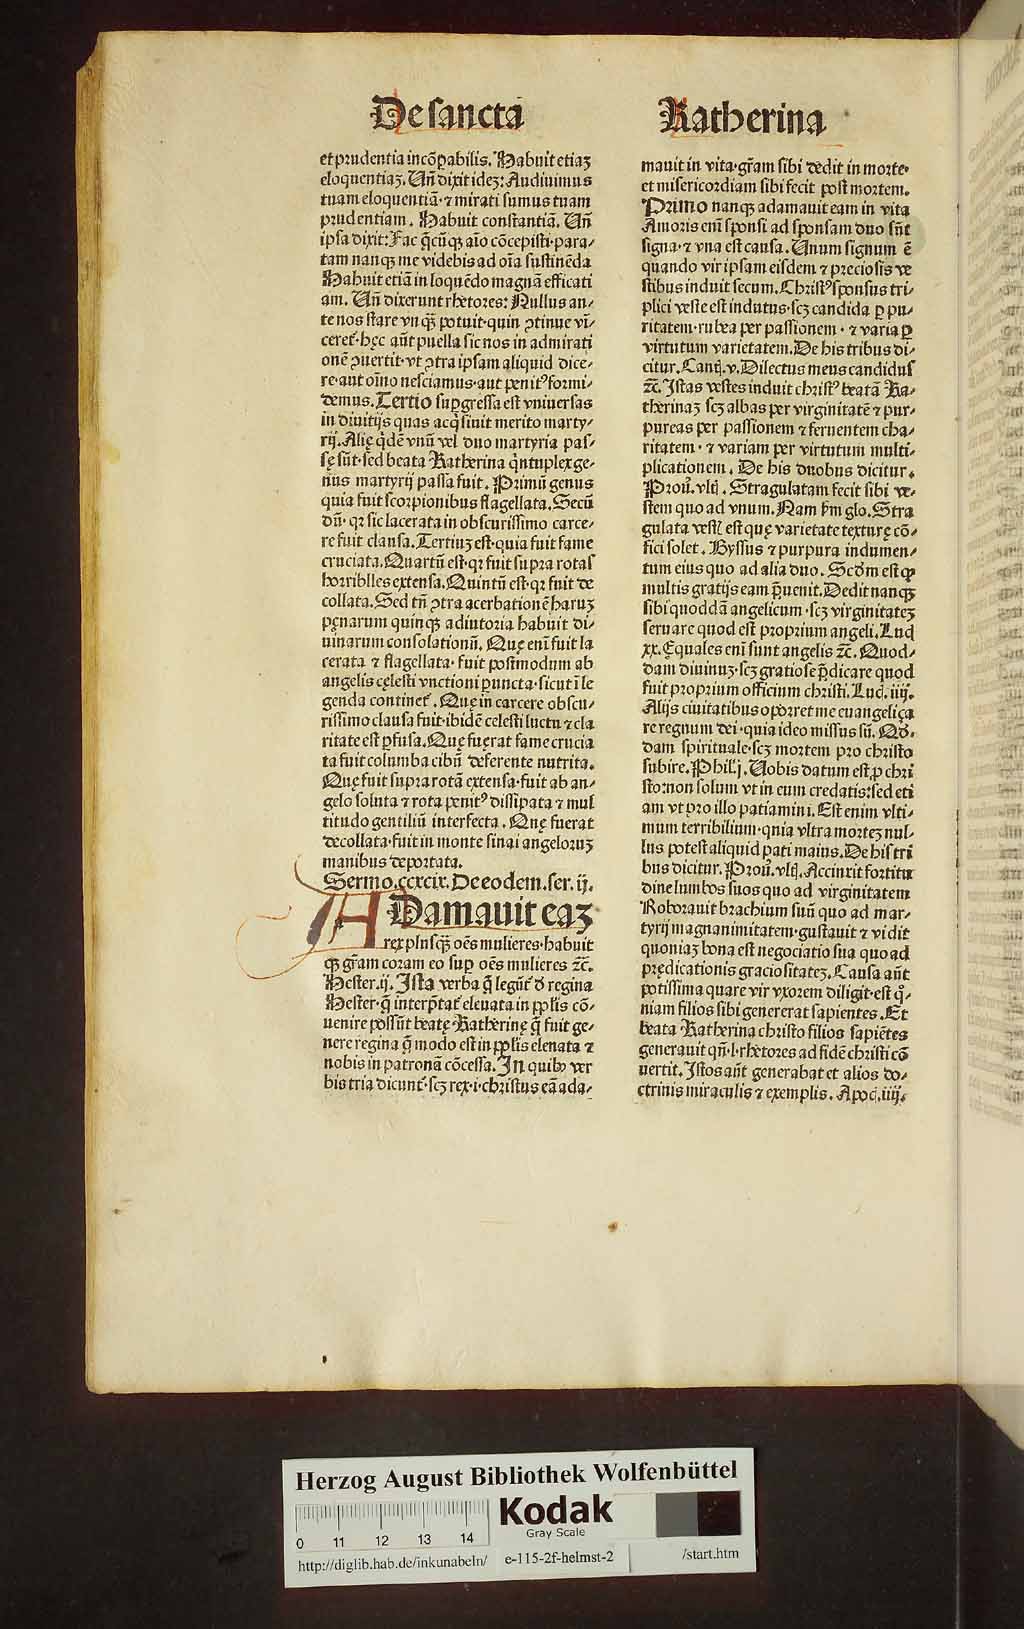 De sancta
Katherina
et prudentia incōꝑabilis. Habuit etiaꝫ
eloquentiaꝫ. Un̄ dixit ideꝫ: Audiuimus
tuam eloquentiā· ⁊ mirati sumus tuam
prudentiam. Habuit constantiā. Un̄
ipsa dixit: Fac q̄cūqꝫ aīo cōcepisti· para⸗
tam nanqꝫ me videbis ad oīa sustinēda
Habuit etiā in loquēdo magnā efficati
am. Un̄ dixerunt rhetores: Nullus an⸗
te nos stare vnqꝫ̄ potuit· quin ꝯtinue vī⸗
ceret᷑· hęc aūt puella sic nos in admirati
onē ꝯuertit· vt ꝯtra ipsam aliquid dice⸗
re· aut oīno nesciamus· aut penitꝰ formi⸗
demus. Tertio suꝑgressa est vniuersas
in diuitijs quas acq̇siuit merito marty⸗
rij. Alię q̇dē vnū vel duo martyria pas⸗
sę sūt· sed beata Katherina q̇ntuplex ge⸗
nus martyrij passa fuit. Primū genus
quia fuit scorpionibus flagellata. Secū
dū· qꝛ sic lacerata in obscurissimo carce⸗
re fuit clausa. Tertiuꝫ est· quia fuit fame
cruciata. Quartū est· qꝛ fuit supra rotas
horriblles extensa. Quintū est· qꝛ fuit de
collata. Sed tn̄ ꝯtra acerbationē haruꝫ
pęnarum quinqꝫ adiutoria habuit di⸗
uinarum consolationū. Quę enī fuit la
cerata ⁊ flagellata· fuit postmodum ab
angelis cęlesti vnctioni ꝑuncta· sicut ī le
genda continet᷑. Quę in carcere obscu⸗
rissimo clausa fuit· ibidē celesti luctu ⁊ cla
ritate est ꝑfusa. Quę fuerat fame crucia
ta fuit columba cibū deferente nutrita.
Quę fuit supra rotā extensa· fuit ab an⸗
gelo soluta ⁊ rota penitꝰ dissipata ⁊ mul
titudo gentiliū interfecta. Quę fuerat
decollata· fuit in monte sinai angeloruꝫ
manibus deportata.
Sermo.ccxcix. De eodem. ser. ij.
ADamauit eaꝫ
rex plusqꝫ̄ oēs mulieres· habuit
qꝫ gr̄am coram eo suꝑ oēs mulieres ⁊c̄.
Hester.ij. Ista verba q̄ legūt᷑ d̄ regina
Hester· q̄ interp̄tat᷑ eleuata in pp̄lis cō⸗
uenire possūt beatę Katherinę q̄ fuit ge⸗
nere regina q̄ modo est in pp̄lis eleuata ⁊
nobis in patronā cōcessa. In quibꝰ ver
bis tria dicunt᷑· scꝫ rex·i· christus eā ada⸗
mauit in vita· gr̄am sibi dedit in morte·
et misericordiam sibi fecit post mortem.
Primo nanqꝫ adamauit eam in vita
Amoris enī sponsi ad sponsam duo sūt
signa· ⁊ vna est causa. Unum signum ē
quando vir ipsam eisdem ⁊ preciosis ve
stibus induit secum. Christꝰ sponsus tri⸗
plici veste est indutus· scꝫ candida ꝓ pu⸗
ritatem· rubea per passionem · ⁊ varia ꝓ
virtutum varietatem. De his tribus di⸗
citur. Canti.v. Dilectus meus candidus
⁊c̄. Istas vestes induit christꝰ beatā Ka⸗
therinaꝫ scꝫ albas per virginitatē ⁊ pur⸗
pureas per passionem ⁊ feruentem cha⸗
ritatem· ⁊ variam per virtutum multi⸗
plicationem. De his duobus dicitur.
Prou̇. vltī. Stragulatam fecit sibi ve⸗
stem quo ad vnum. Nam ẜm glo. Stra
gulata vestī est quę varietate texturę cō⸗
fici solet. Byssus ⁊ purpura indumen⸗
tum eius quo ad alia duo. Scd̄m est qꝫ
multis gratijs eam p̄uenit. Dedit nanqꝫ
sibi quoddā angelicum· scꝫ virginitateꝫ
seruare quod est proprium angeli. Luc̄
xx. Equales enī sunt angelis ⁊c̄. Quod⸗
dam diuinuꝫ· scꝫ gratiose p̄dicare quod
fuit proprium officium christi. Luc̄. iiij.
Alijs ciuitatibus oporret me euangeliça
re regnum dei· quia ideo missus sū. Qd̄⸗
dam spirituale· scꝫ mortem pro christo
subire. Phil.j. Uobis datum est ꝓ chri
sto: non solum vt in eum credatis: sed eti
am vt pro illo patiamini. Est enim vlti⸗
mum terribilium· quia vltra morteꝫ nul⸗
lus potest aliquid pati maius. De his tri
bus dicitur. Prou̇. vltī. Accinxit fortitu
dine lumbos suos quo ad virginitatem
Roborauit brachium suū quo ad mar⸗
tyrij magnanimitatem· gustauit ⁊ vidit
quoniaꝫ bona est negociatio sua quo ad
prędicationis graciositateꝫ. Causa aūt
potissima quare vir vxorem diligit· est q̊⸗
niam filios sibi genererat sapientes. Et
beata Katherina christo filios sapiētes
generauit qn̄·l· rhetores ad fidē christi cō
uertit. Istos aūt generabat et alios do⸗
ctrinis miraculis ⁊ exemplis. Apoc̄. iiij.
Herzog August Bibliothek Wolfenbüttel
Kodak
Gray Scale
0 11 12 13 14
http://diglib.hab.de/inkunabeln/ e-115-2f-helmst-2 /start.htm